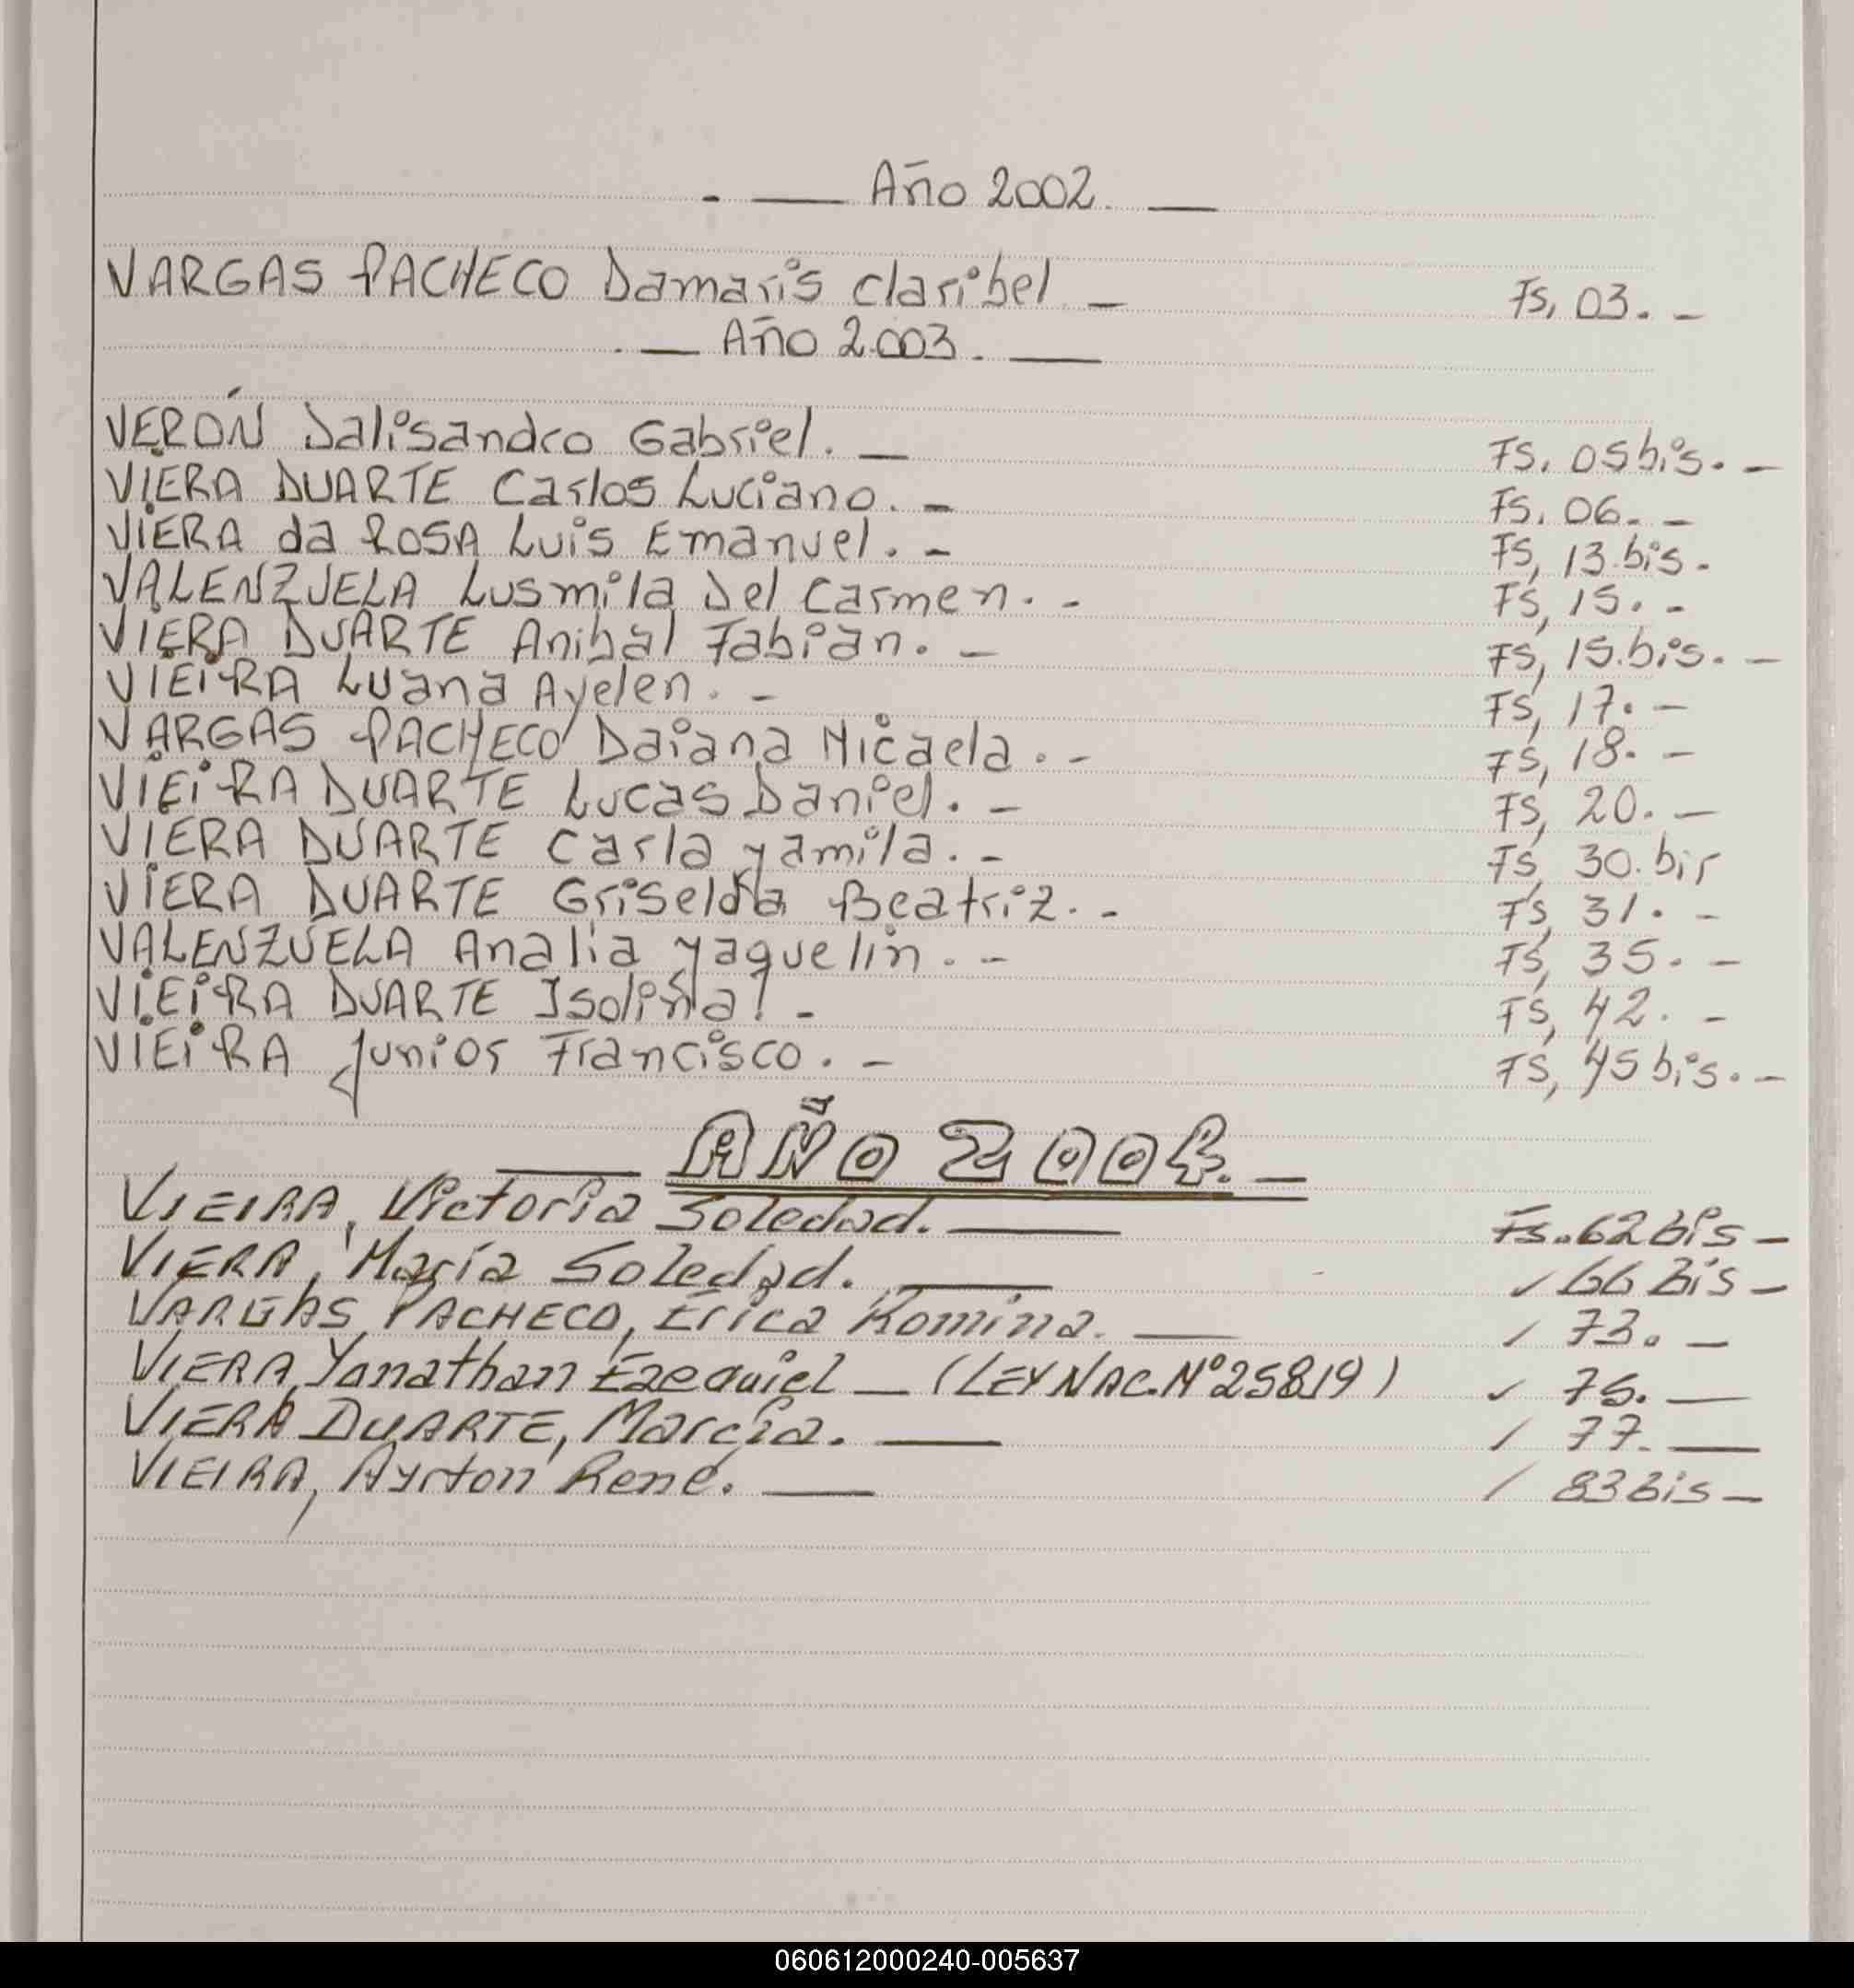 . — Año 2002. —
VARGAS PACHECO Damaris claribel - Fs, 03. -
. — Año 2.003. —
VERÓN Dalisandro Gabriel. — Fs. 05 bis. -
VIERA DUARTE Carlos Luciano. - Fs. 06. -
VIERA da ROSA Luis Emanuel. - Fs, 13.bis.
VALENZUELA Lusmila Del Carmen. - Fs, 15. -
VIERA DUARTE Anibal Fabian. - Fs, 15.bis. -
VIEIRA Luana Ayelen. - Fs, 17. -
VARGAS PACHECO Daiana Micaela. - Fs, 18. -
VIEIRA DUARTE Lucas Daniel. - Fs, 20. -
VIERA DUARTE Carla yamila. - Fs, 30.bis
VIERA DUARTE Griselda Beatriz. - Fs, 31. -
VALENZUELA Analia yaquelin. - Fs, 35. -
VIEIRA DUARTE Isolina. - Fs, 42. -
VIEIRA Junior Francisco. - Fs, 45 bis. -
— AÑO 2004. —
VIEIRA, Victoria Soledad. — Fs. 62 bis -
VIERA, María Soledad. — / 66 Bis -
VARGAS PACHECO, Erica Romina. — / 73. -
VIERA, Yonathan Ezequiel — (LEY NAC. Nº 25819) / 75. —
VIERA DUARTE, Marcia. — / 77. —
VIEIRA, Ayrton René. — / 83 Bis -
060612000240-005637